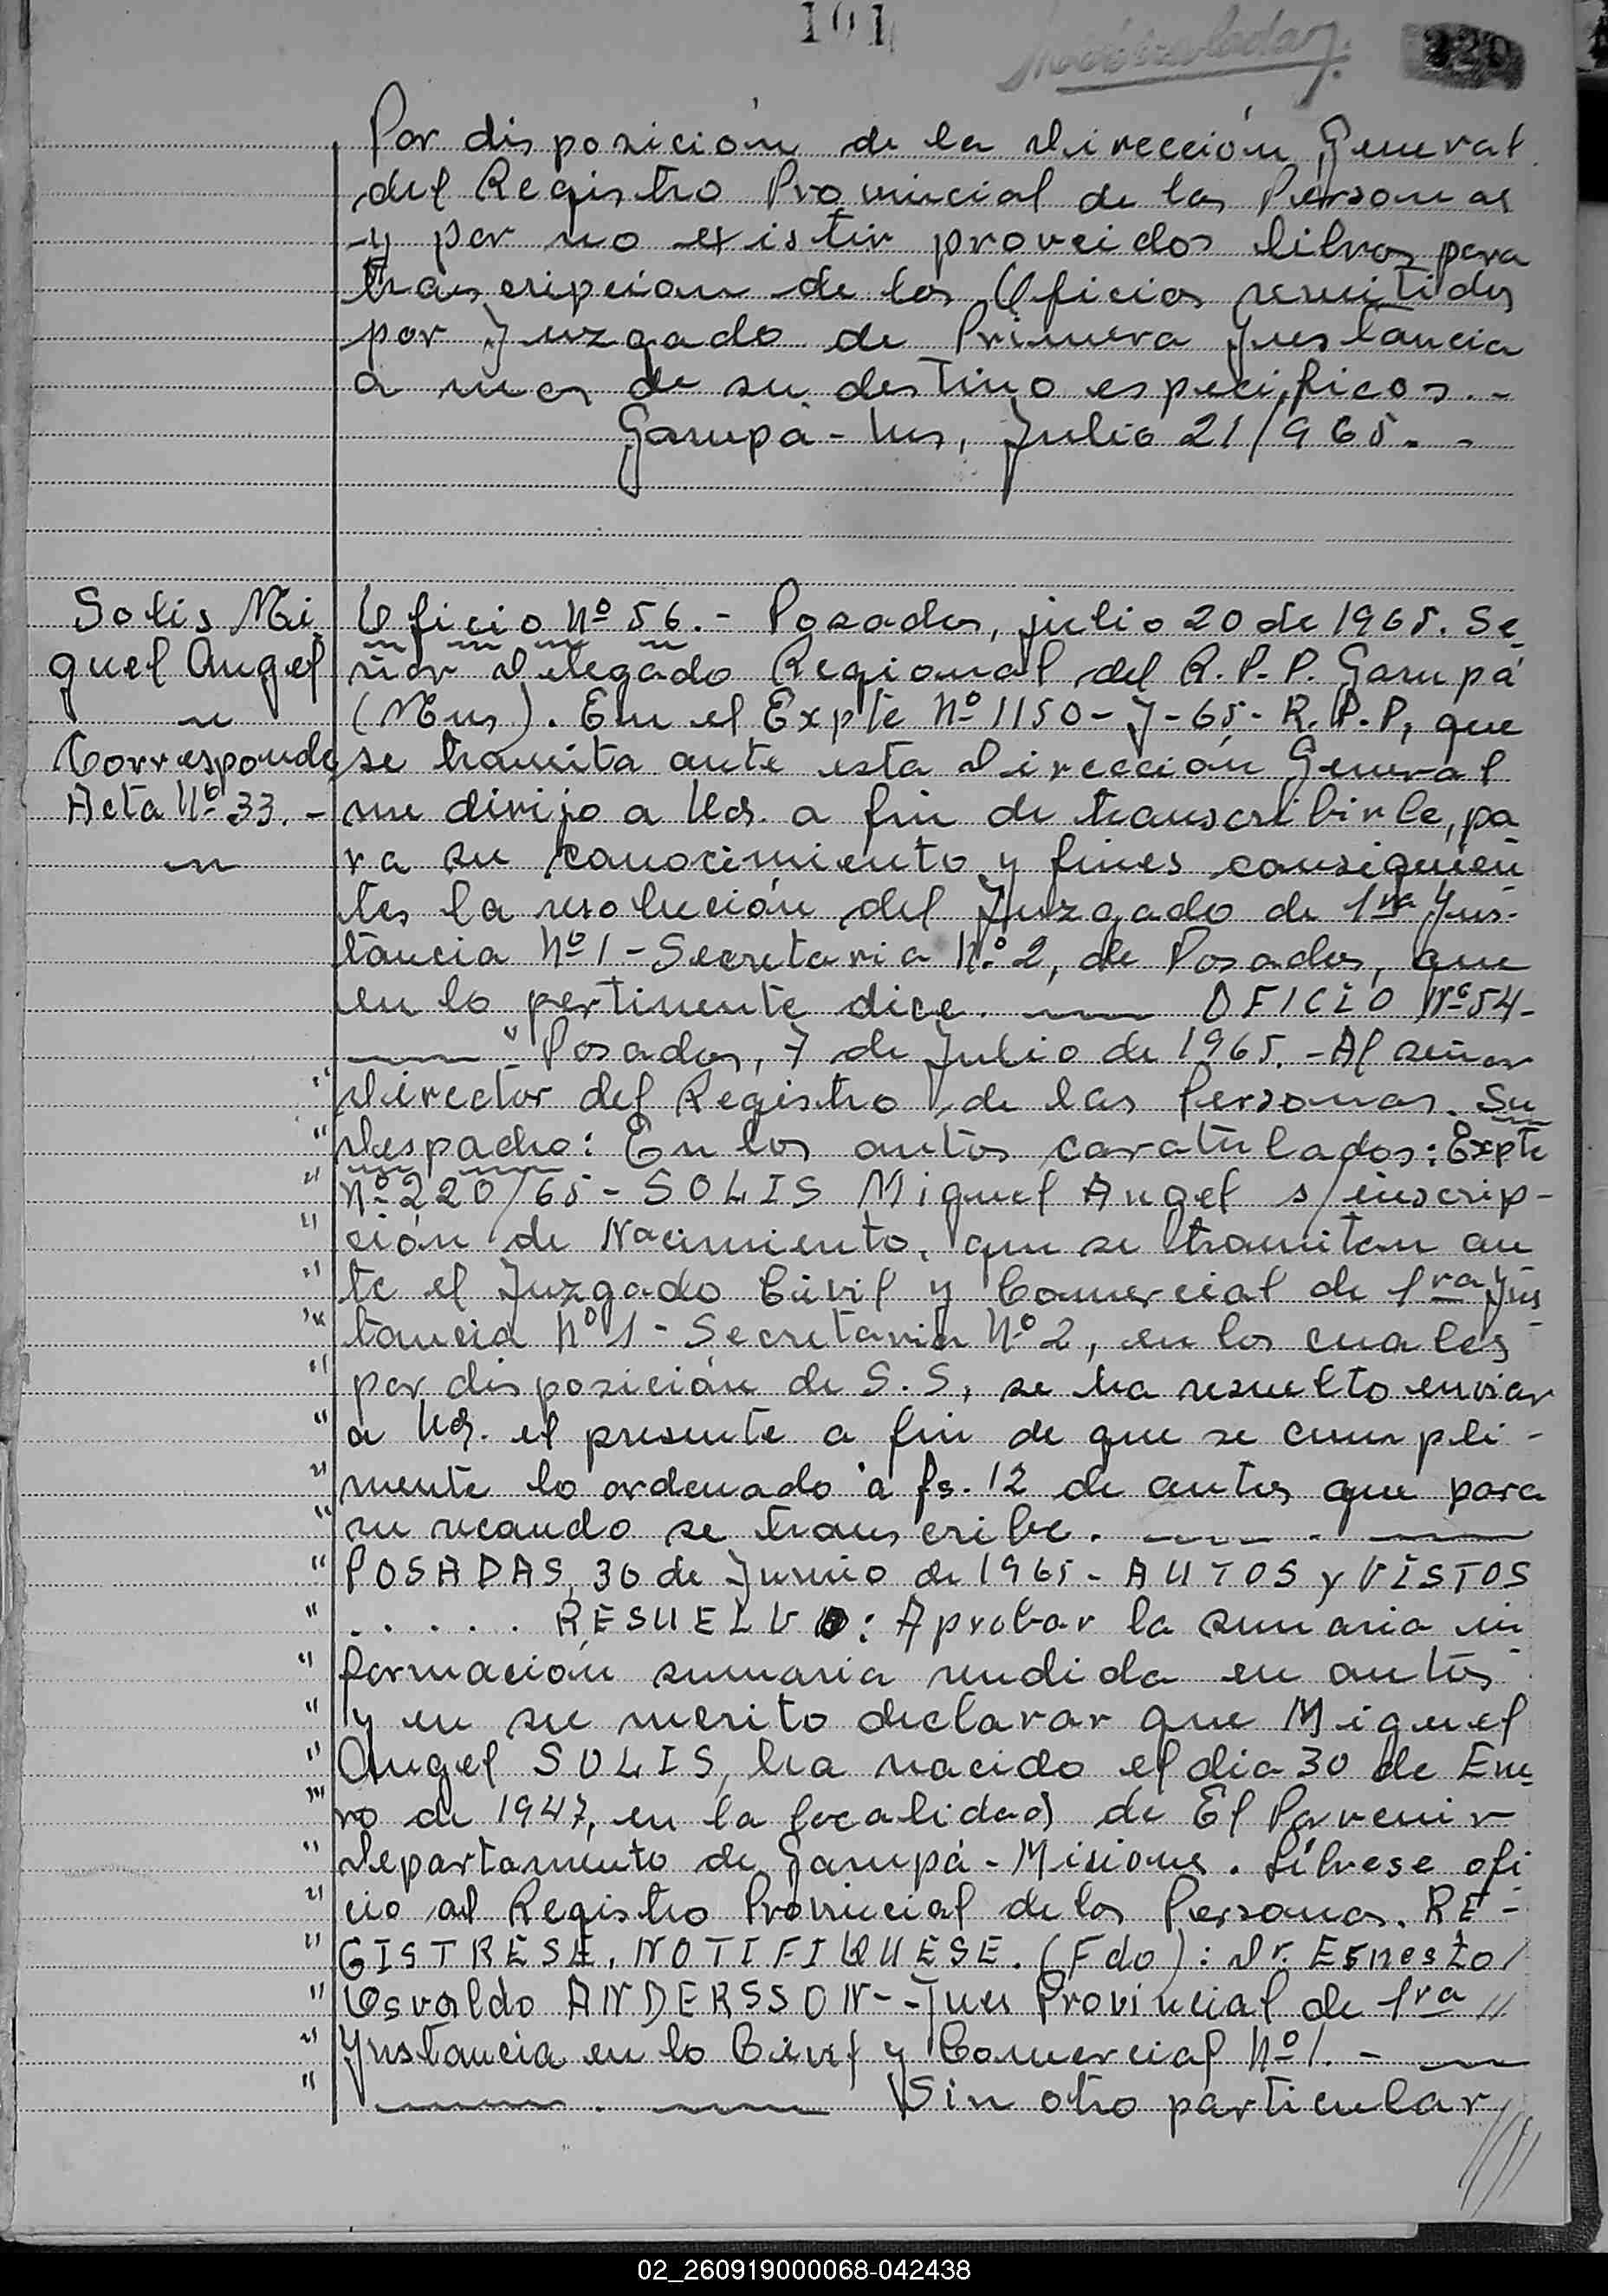 101
220
Por disposición de la Dirección General
del Registro Provincial de las Personas
y por no existir proveidos libros para
trascripcion de los Oficios remitidos
por Juzgado de Primera Instancia
a mas de su destino especificos. -
Garupá - Mns, Julio 21/965. -
Solis Mi
guel Angel
Corresponde
Acta Nº 33. -
Oficio Nº 56. - Posadas, julio 20 de 1965. Se
ñor Delegado Regional del R. P. P. Garupá
(Mns). En el Expte Nº 1150-J-65- R. P. P, que
se tramita ante esta Dirección General
me dirijo a Ud. a fin de transcribirle, pa
ra su conocimiento y fines consiguien
tes la resolución del Juzgado de 1ra Ins-
tancia Nº 1 - Secretaria Nº 2, de Posadas, que
en lo pertinente dice. OFICIO Nº 54-
" Posadas, 7 de Julio de 1965. - Al señor
" Director del Registro de las Personas. Su
" Despacho: En los autos caratulados: Expte
" Nº 220/65 - SOLIS Miguel Angel s/inscrip-
" ción de Nacimiento, que se tramitan an
" te el Juzgado Civil y Comercial de 1ra Ins
" tancia Nº 1 - Secretaria Nº 2, en los cuales
" por disposición de S. S, se ha resuelto enviar
" a Ud. el presente a fin de que se cumpli-
" mente lo ordenado a fs. 12 de autos que para
" su recaudo se transcribe. - . -
" POSADAS, 30 de Junio de 1965 - AUTOS y VISTOS
" . . . . . RESUELVO: Aprobar la sumaria in
" formación sumaria rendida en autos
" y en su merito declarar que Miguel
" Angel SOLIS, ha nacido el dia 30 de Ene
" ro de 1947, en la localidad de El Porvenir
" Departamento de Garupá - Misiones. Líbrese ofi
" cio al Registro Provincial de las Personas. RE-
" GISTRESE, NOTIFIQUESE. (Fdo): Dr. Ernesto/
" Osvaldo ANDERSSON - Jues Provincial de 1ra //
" Instancia en lo Civil y Comercial Nº 1. -
" Sin otro particular ////
02_260919000068-042438